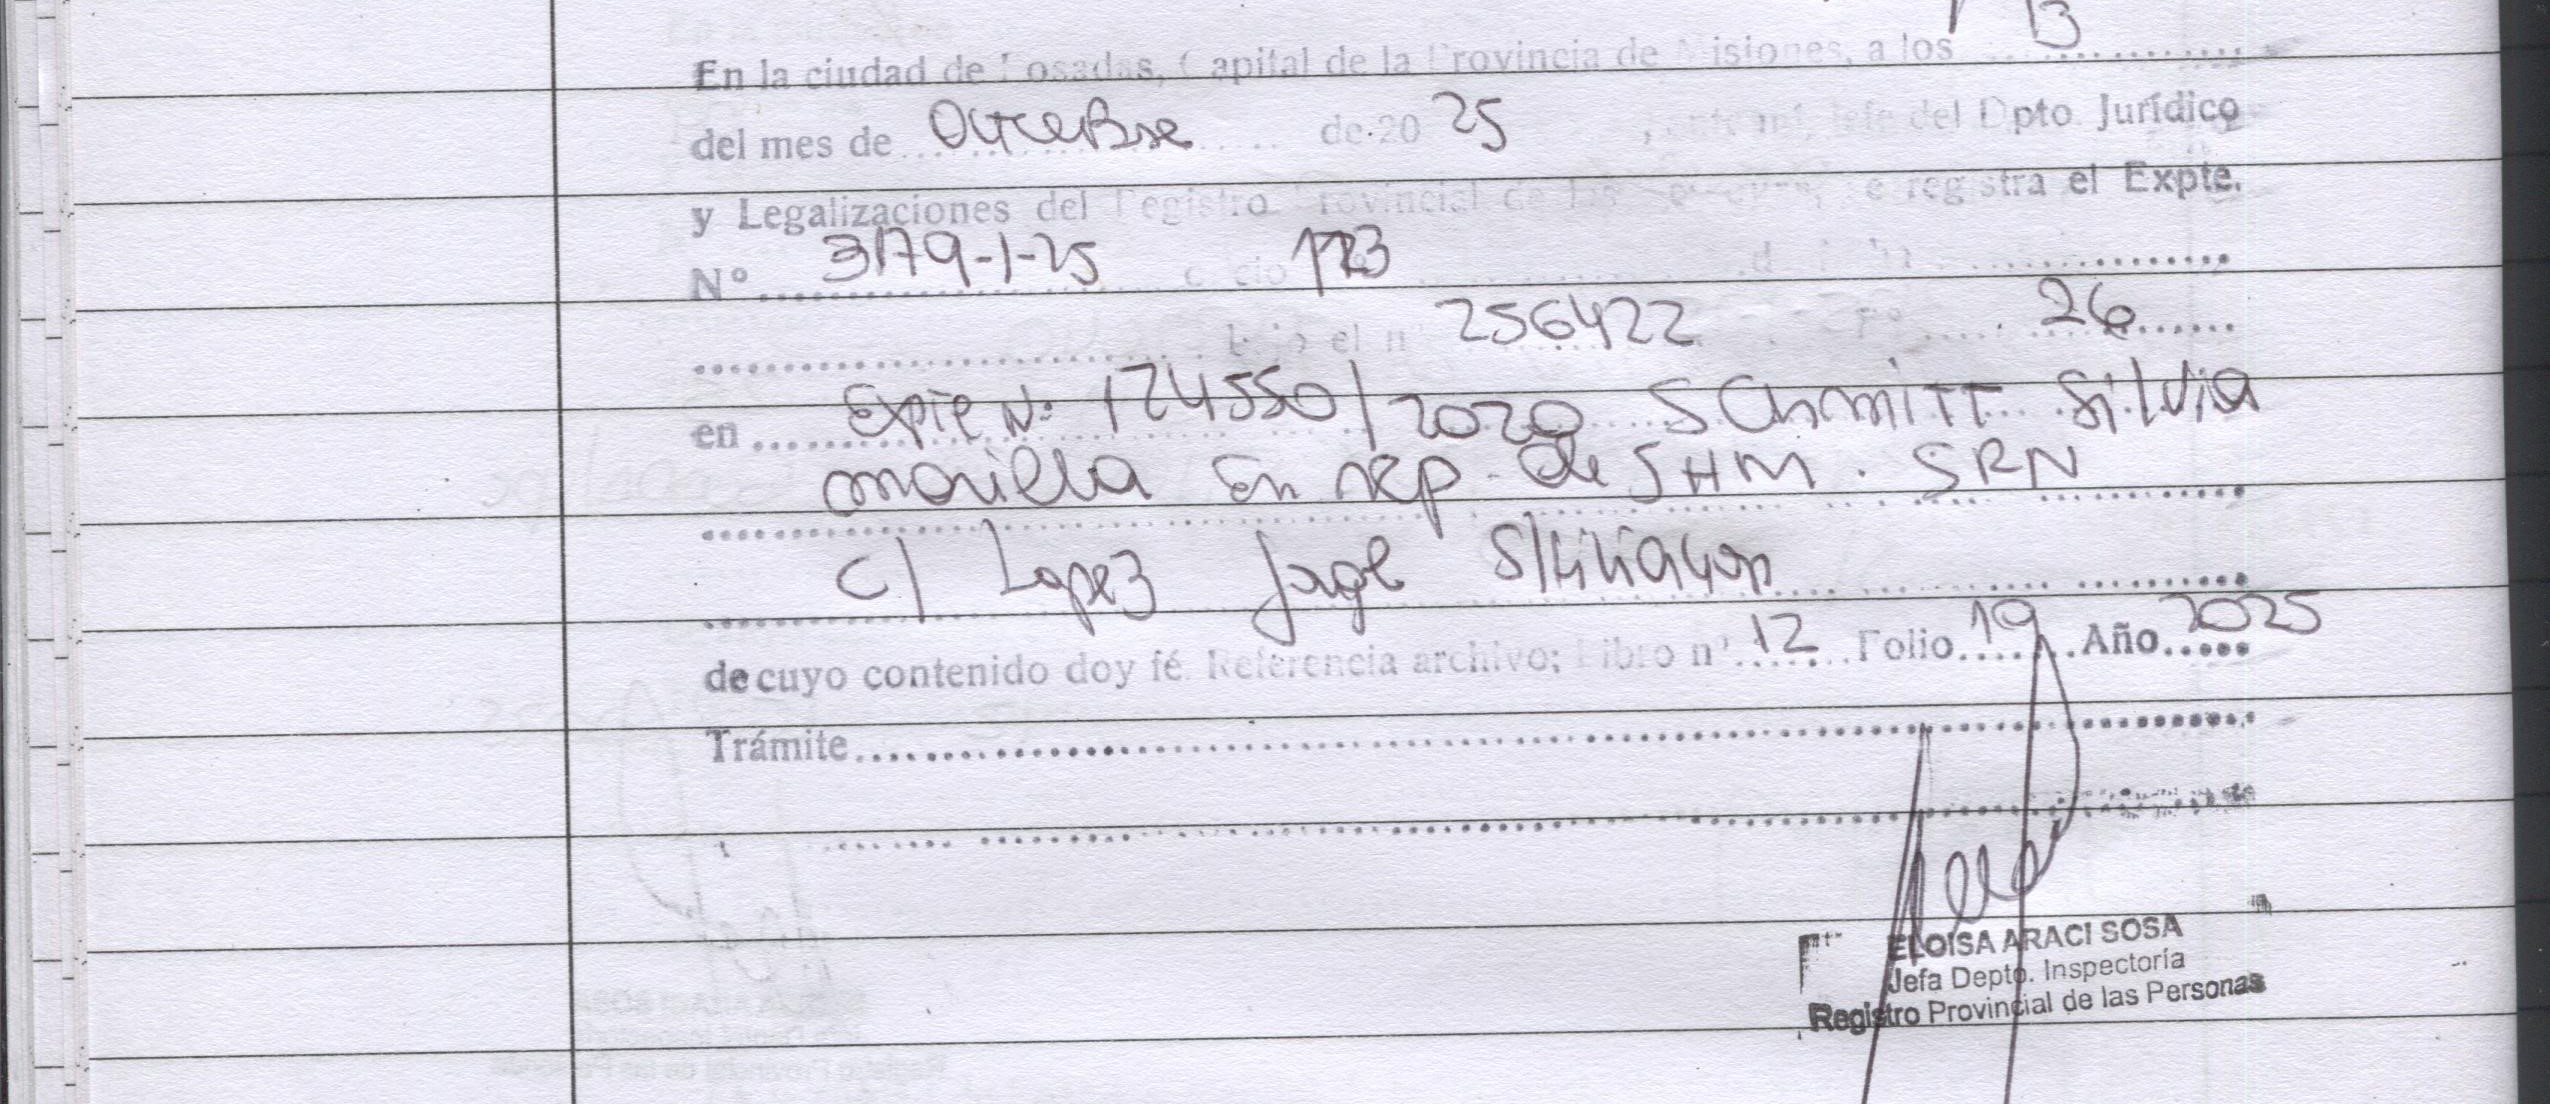 En la ciudad de Posadas, Capital de la Provincia de Misiones, a los 13
del mes de Octubre de 20 25 , ante mí, Jefe del Dpto. Jurídico
y Legalizaciones del Registro Provincial de las Personas, se registra el Expte.
Nº 3179-1-25
bajo el n 256422 Fº 26
en Expte Nº 124550/2020 Schmitt Silvia
Mariela En rep. de SHM. SRN
c/ Lopez Jorge S/Filiación
de cuyo contenido doy fé. Referencia archivo; Libro nº 12 Folio 19 Año 2025
Trámite
ELOISA ARACI SOSA
Jefa Depto. Inspectoría
Registro Provincial de las Personas